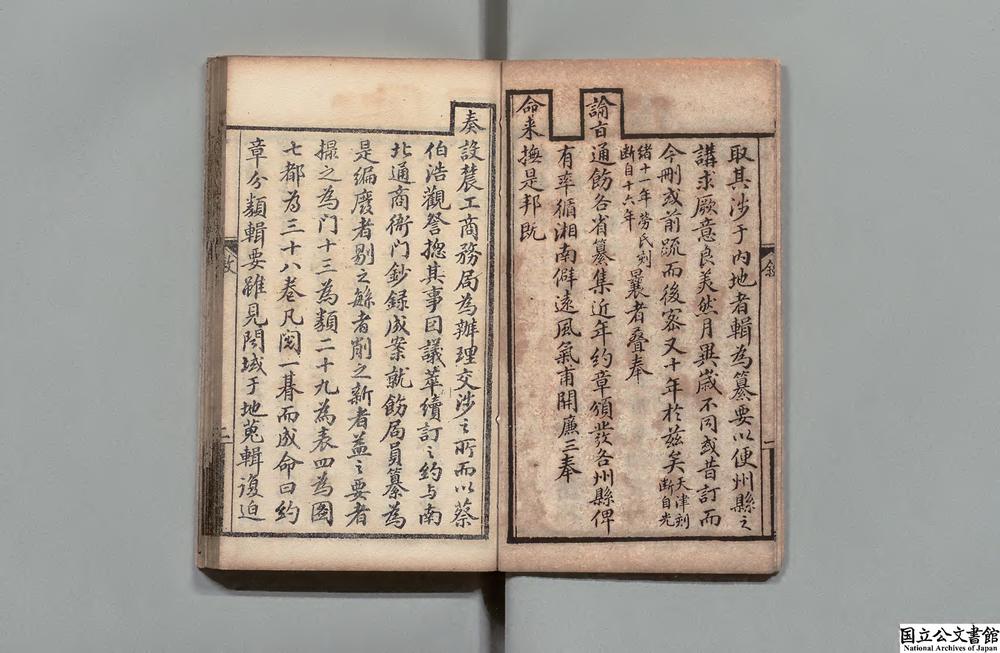 取其涉于內地者輯為纂要以便州縣之
講求厥意良美然月異歲不同或昔訂而
今刪或前疏而後密又十年於茲矣天津刻斷自光
緒十一年勞氏刻斷自十六年曩者疊奉
諭旨通飭各省纂集近年約章頒發各州縣俾
有率循湘南僻遠風氣甫開廉三奉
命来撫是邦既
敘
一
奏設農工商務局為辦理交涉之所而以蔡
伯浩觀詧摠其事因議萃續訂之約与南
北通商衙門鈔録成案就飭局員纂為
是編廢者剔之繇者削之新者益之要者
撮之為门十三為類二十九為表四為圖
七都为三十八卷凡閱一朞而成命曰約
章分類輯要雖見閗域于地蒐輯復迫
敘
二
国立公文書館
National Archives of Japan